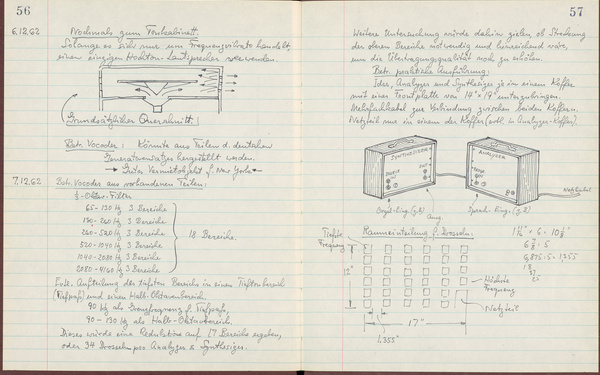 56
6.12.62 Nochmals zum Toncabinett:
Solange es sich nur um Frequenzvibrato handelt,
einen einzigen Hochton-Lautsprecher verwenden.
Grundsätzlicher Querschnitt!
Betr. Vocoder: Könnte aus Teilen d. deutschen
Generatorsatzes hergestellt werden.
Gutes Vermietobjekt f. New York
7.12.62 Betr. Vocoder aus vorhandenen Teilen:
65-130 Hz 3 Bereiche
130-260 Hz 3 Bereiche
260-520 Hz 3 Bereiche
520-1040 Hz 3 Bereiche
1040-2080 Hz 3 Bereiche
2080-4160 Hz 3 Bereiche
18 Bereiche.
Evtl. Aufteilung des tiefsten Bereichs in einen Tieftonbereich
(Tiefpass) und einen Halb-Oktavenbereich.
90 Hz als Grenzfrequenz f. Tiefpass
90-130 Hz als Halb-Oktavbereich.
Dieses würde eine Reduktion auf 17 Bereiche ergeben,
oder 34 Drosseln pro Analyzer & Synthesizer.
57
Weitere Untersuchung würde dahin zielen, ob Streckung
der oberen Bereiche notwendig und hinreichend wäre,
um die Übertragungsqualität noch zu erhöhen.
Betr. praktische Ausführung:
Idee, Analyzer und Synthesizer je in einem Koffer
mit einer Frontplatte von 14" x 19" unterzubringen.
Mehrfachkabel zur Verbindung zwischen beiden Koffern.
Netzteil nur in einem der Koffer (evtl. in Analyzer-Koffer).
SYNTHESIZER
OUT
ANALYZER
Netzkabel
Ausg.
Sprach-Eing. (z.B.)
Raumeinteilung f. Drosseln:
Tiefste
Frequenz
12"
Höchste
Frequenz
Netzteil
17"
1.355"
6,875 : 5 = 1.355
18